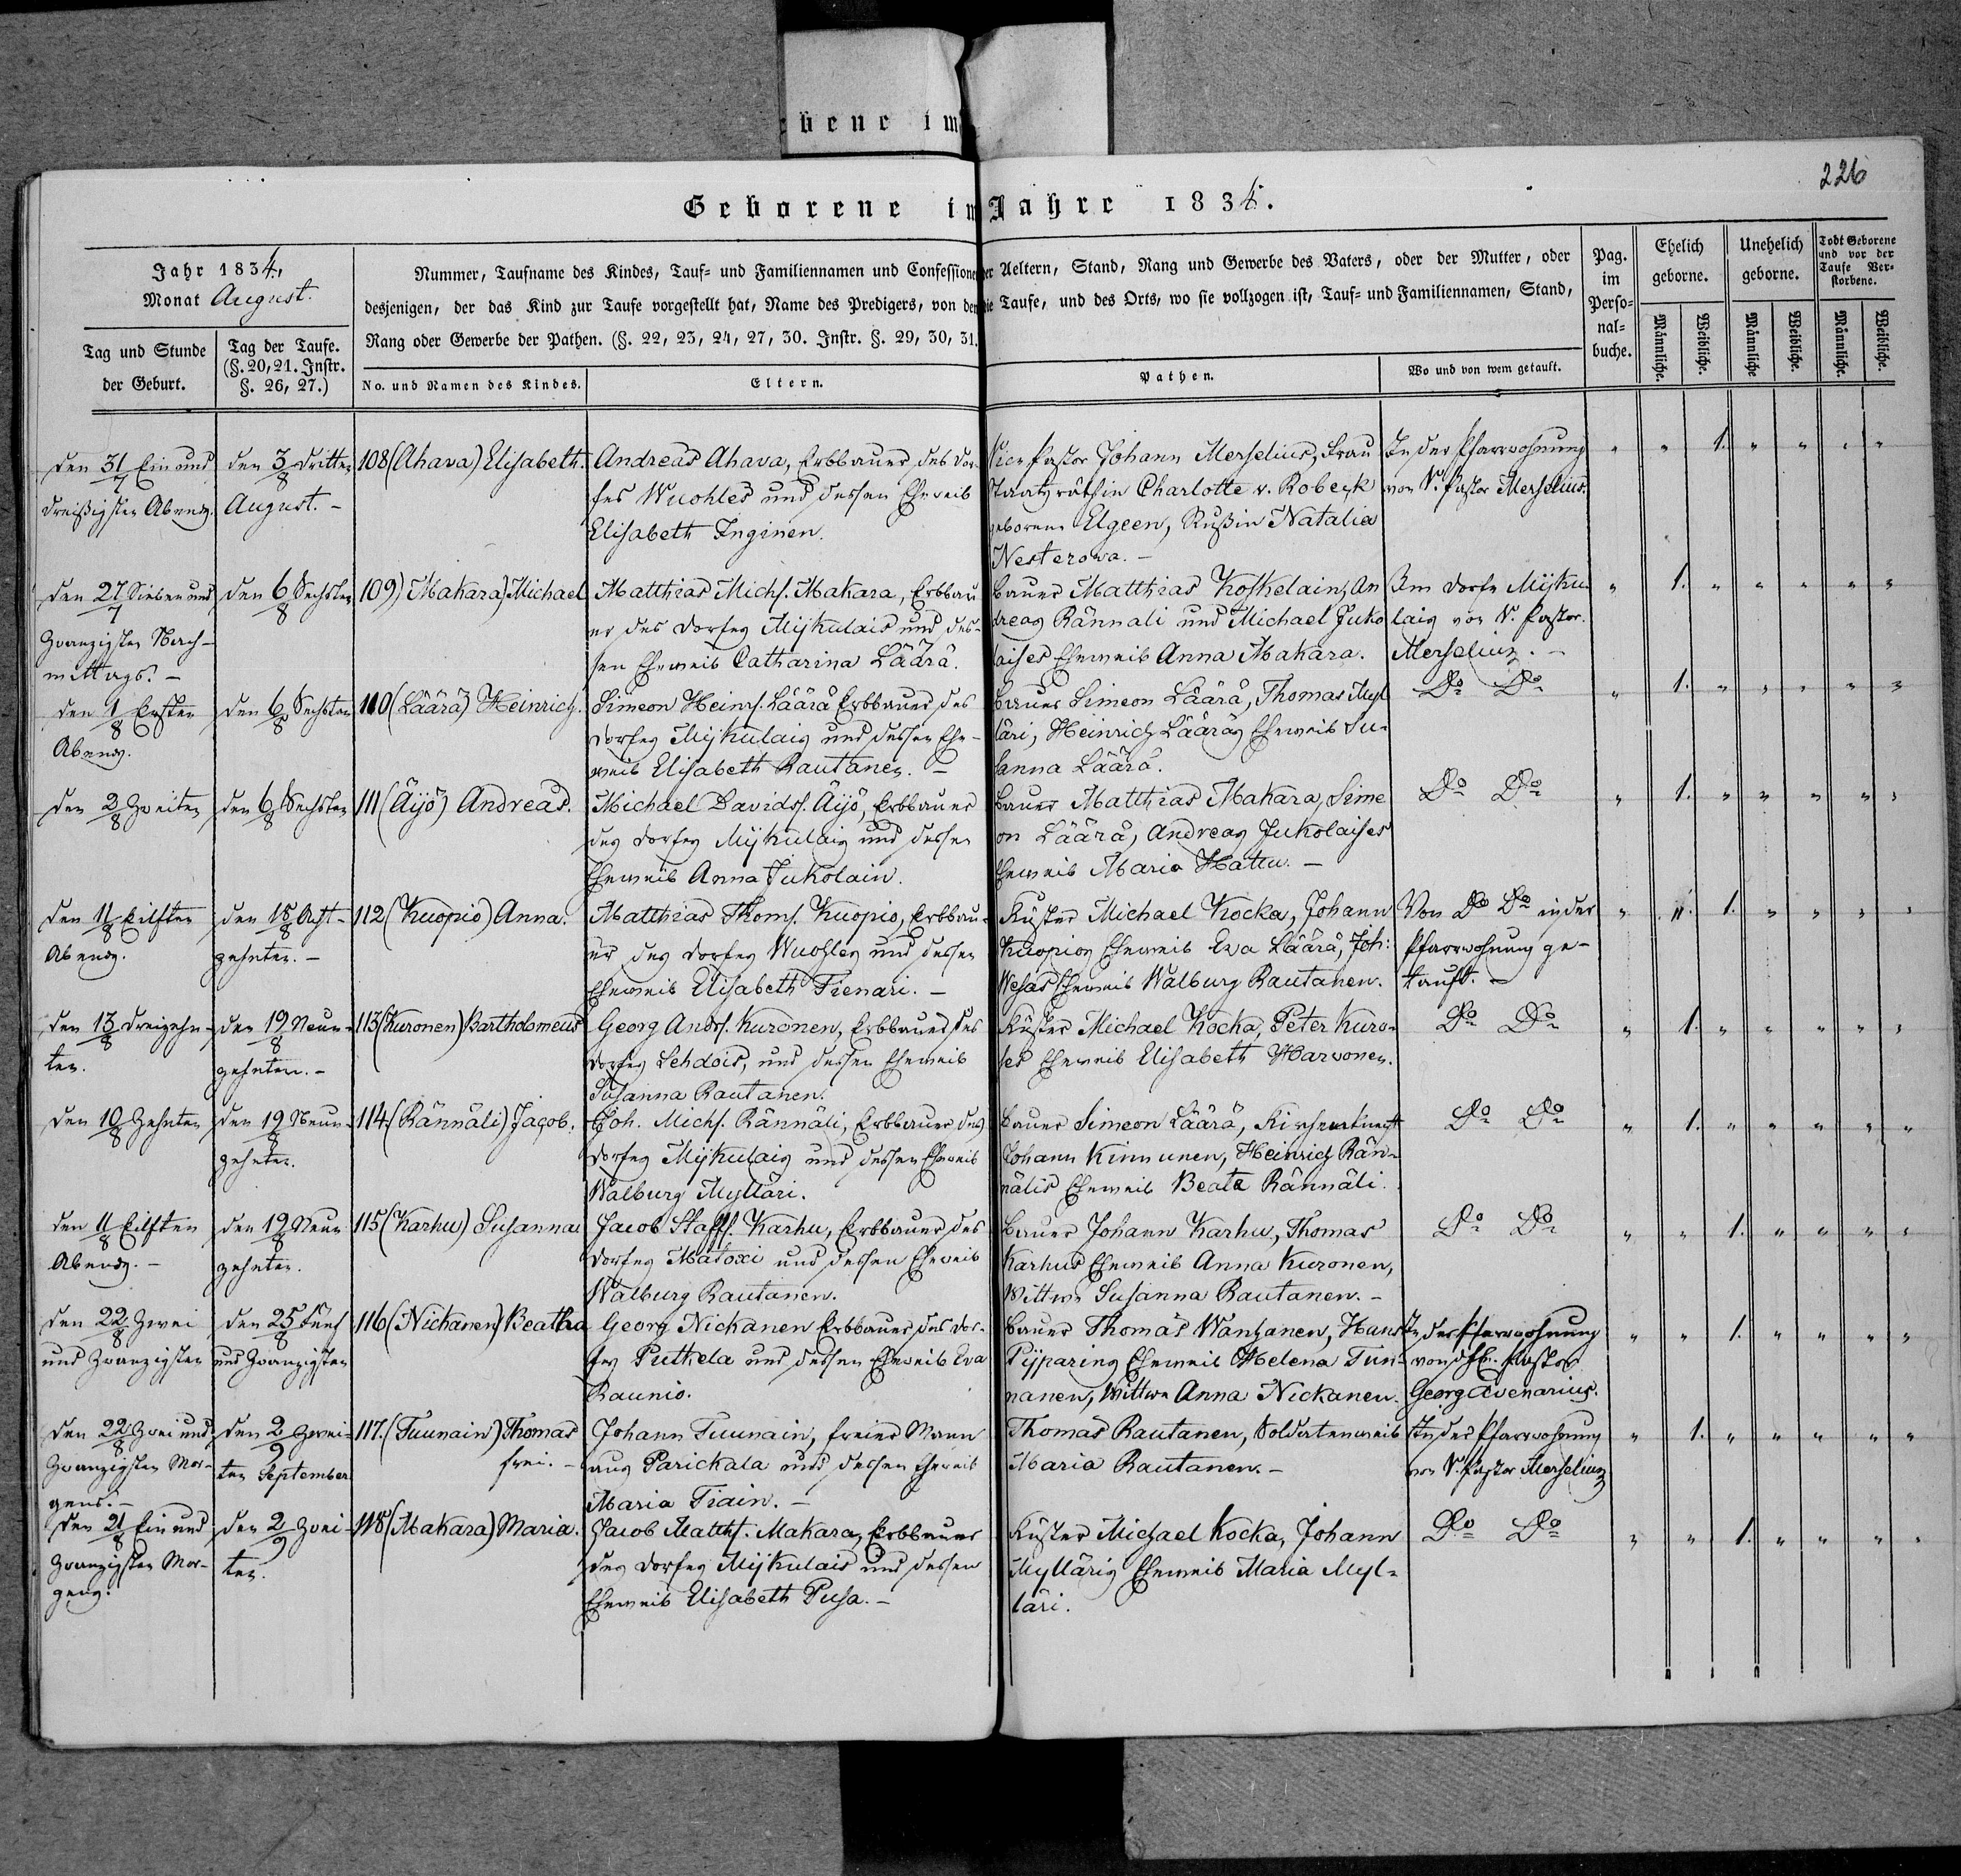 bene im
226
Geborene im Jahre 1834.
Jahr 1834,
Monat August.
Tag und Stunde
der Geburt.
Tag der Taufe.
(§. 20, 21. Instr.
§. 26, 27.)
Nummer, Taufname des Kindes, Tauf- und Familiennamen und Confessione der Aeltern, Stand, Rang und Gewerbe des Vaters, oder der Mutter, oder
desjenigen, der das Kind zur Taufe vorgestellt hat, Name des Predigers, von dem die Taufe, und des Orts, wo sie vollzogen ist, Tauf- und Familiennamen, Stand,
Rang oder Gewerbe der Pathen. (§. 22, 23, 24, 27, 30. Instr. §. 29, 30, 31.
No. und Namen des Kindes.
Eltern.
Pathen.
Wo und von wem getauft.
Pag.
im
Perso-
nal-
buche.
Ehelich
geborne.
Unehelich
geborne.
Todt Geborene
und vor der
Taufe Ver-
storbene.
Männliche.
Weibliche.
Männliche
Weibliche.
Männliche.
Weibliche.
den 31/7 Ein und
dreißigsten Abends.
den 3/8 dritten
August. -
108 (Ahava) Elisabeth.
Andreas Ahava, Erbbauer des Dor-
fes Wuohles und dessen Eheweib
Elisabeth Inginen.
Vice Pastor Johann Merselius, Frau
Staatsräthin Charlotte v. Robeck
geborene Elgeen, Russin Natalia
Nesterowa. -
In der Pfarrwohnung
von V. Pastor Merselius.
" " 1. " " " "
den 27/7 Sieben und
Zwanzigsten Nach-
mittags. -
den 6/8 Sechsten
109) Makara) Michael
Matthias Michs. Makara, Erbbau-
er des Dorfes Mijkulais und des-
sen Eheweib Catharina Läärä.
Bauer Matthias Koskelain, An
dreas Rännali und Michael Juko
laises Eheweib Anna Makara.
Im Dorfe Mijku-
lais von V. Pastor.
Merselius. -
" 1. " " " " "
den 1/8 Ersten
Abends.
den 6/8 Sechsten
110 (Läärä) Heinrich.
Simeon Heinrs. Läärä Erbbauer des
Dorfes Mijkulais und dessen Ehe-
weib Elisabeth Rautanen. -
Bauer Simeon Läärä, Thomas Myl
läri, Heinrich Lääräs Eheweib Su-
sanna Läärä.
Do Do
" 1. " " " " "
den 2/8 Zweiten
den 6/8 Sechsten
111 (Äijö) Andreas.
Michael Davids. Äijö, Erbbauer
des Dorfes Mijkulais und dessen
Eheweib Anna Jukolain.
Bauer Matthias Makara, Sime
on Läärä, Andreas Jukolaises
Eheweib Maria Hattu. -
Do Do
" 1. " " " " "
den 11/8 Eilften
Abends.
den 18/8 Acht-
zehnten. -
112 (Kuopio) Anna.
Matthias Thoms. Kuopio, Erbbau-
er des Dorfes Wuohles und dessen
Eheweib Elisabeth Tienari. -
Küster Michael Kocka, Johann
Kuopios Eheweib Eva Läärä, Joh:
Wesas Eheweib Walburg Rautanen.
Von Do Do in der
Pfarrwohnung ge-
tauft. -
" " 1. " " " "
den 13/8 dreizehn-
ten.
den 19/8 Neun-
zehnten. -
113 (Kuronen) Bartholomeus
Georg Andrs. Kuronen, Erbbauer des
Dorfes Lehdois, und dessen Eheweib
Susanna Rautanen.
Küster Michael Kocka, Peter Kuro-
ses Eheweib Elisabeth Harvonen.
Do Do
" 1. " " " " "
den 10/8 Zehnten
den 19/8 Neun-
zehnten.
114. (Rännäli) Jacob.
Joh. Michs. Rännäli, Erbbauer des
Dorfes Mijkulais und dessen Eheweib
Walburg Mylläri.
Bauer Simeon Läärä, Kirchenknecht
Johann Kinnunen, Heinrich Rän-
nälis Eheweib Beata Rännäli.
Do Do
" 1. " " " " "
den 11/8 Eilften
Abends. -
den 19/8 Neun
zehnten.
115 (Karhu) Susanna
Jacob Staffs. Karhu, Erbbauer des
Dorfes Matoxi und dessen Eheweib
Walburg Rautanen.
Bauer Johann Karhu, Thomas
Karhus Eheweib Anna Kuronen,
Wittwe Susanna Rautanen. -
Do Do
" " 1. " " " "
den 22/8 Zwei
und Zwanzigsten
den 25/8 Fünf
und Zwanzigsten
116 (Nickanen) Beatha
Georg Nickanen Erbbauer des Dor-
fes Puthela und dessen Eheweib Eva
Raunio.
Bauer Thomas Wanhanen, Hans
Pijparins Eheweib Helena Tun-
nanen, Wittwe Anna Nickanen.
In der Pfarrwohnung
von Pastor
Georg Avenarius.
" " 1. " " " "
den 22/8 Zwei und
Zwanzigsten Mor-
gens. -
den 2/9 Zwei-
ten September
117. (Tuunain) Thomas
frei. -
Johann Tuunain, freier Mann
aus Parickala und dessen Eheweib
Maria Tiain. -
Thomas Rautanen, Soldatenweib
Maria Rautanen. -
In der Pfarrwohnung
von V. Pastor Merselius
" 1. " " " " "
den 21/8 Ein und
Zwanzigsten Mor-
gens.
den 2/9 Zwei-
ten.
118 (Makara) Maria.
Jacob Matths. Makara, Erbbauer
des Dorfes Mijkulais und dessen
Eheweib Elisabeth Pusa. -
Küster Michael Kocka, Johann
Mylläris Eheweib Maria Myl-
läri.
Do Do
" " 1. " " " "